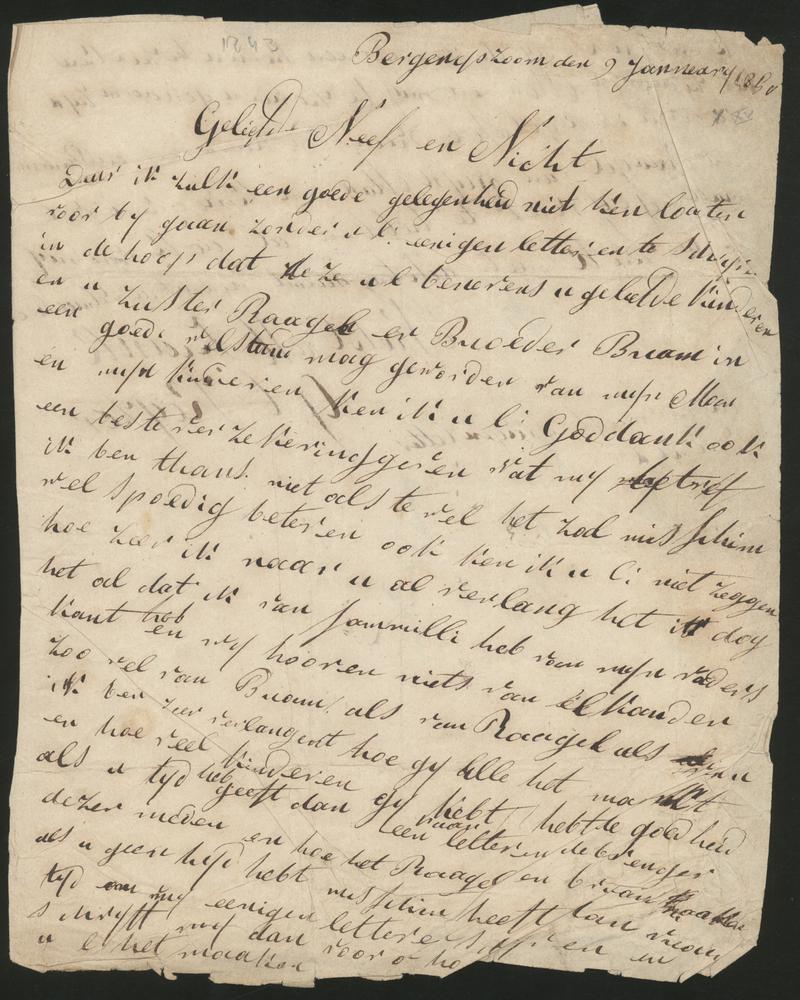 Bergenopzoom den 9 Jannuary 1860
Geliefde Neef en Nicht
Daar ik zulk een goede gelegenheid niet ken laaten
voor by gaan zonder u l: eenigen letter en te schryven
in de hoop dat deze u l benevens u geliefde kinderen
en u zuster Raagel en Broeder Braam in
een goede welstand mag geworden van myn Man
en myn kinderen ken ik u l: Goddank ook
een beste verzekering geven wat my betref
ik ben thans niet als te wel het zal misschien
wel spoedig beteren ook ken ik u l: niet zeggen
hoe zeer ik naar u al verlang het is dog
het al dat ik van fammilli heb van myn vaders
kant en wy hooren niets van elkanden
zoo wel van Braam als van Raagel als van u
ik ben zeer verlangent hoe gy alle het maakt
en hoe veel kinderen gy hebt hebt de goedheid
als u tyd heb geeft dan een letter en de brenger
dezer meden en hoe het Raagel en Braam maaken
als u geen tyd hebt misschien heeft dan vrouw
tyd om my eenigen letters schryven en
schryft my dan voor
u l het maaken